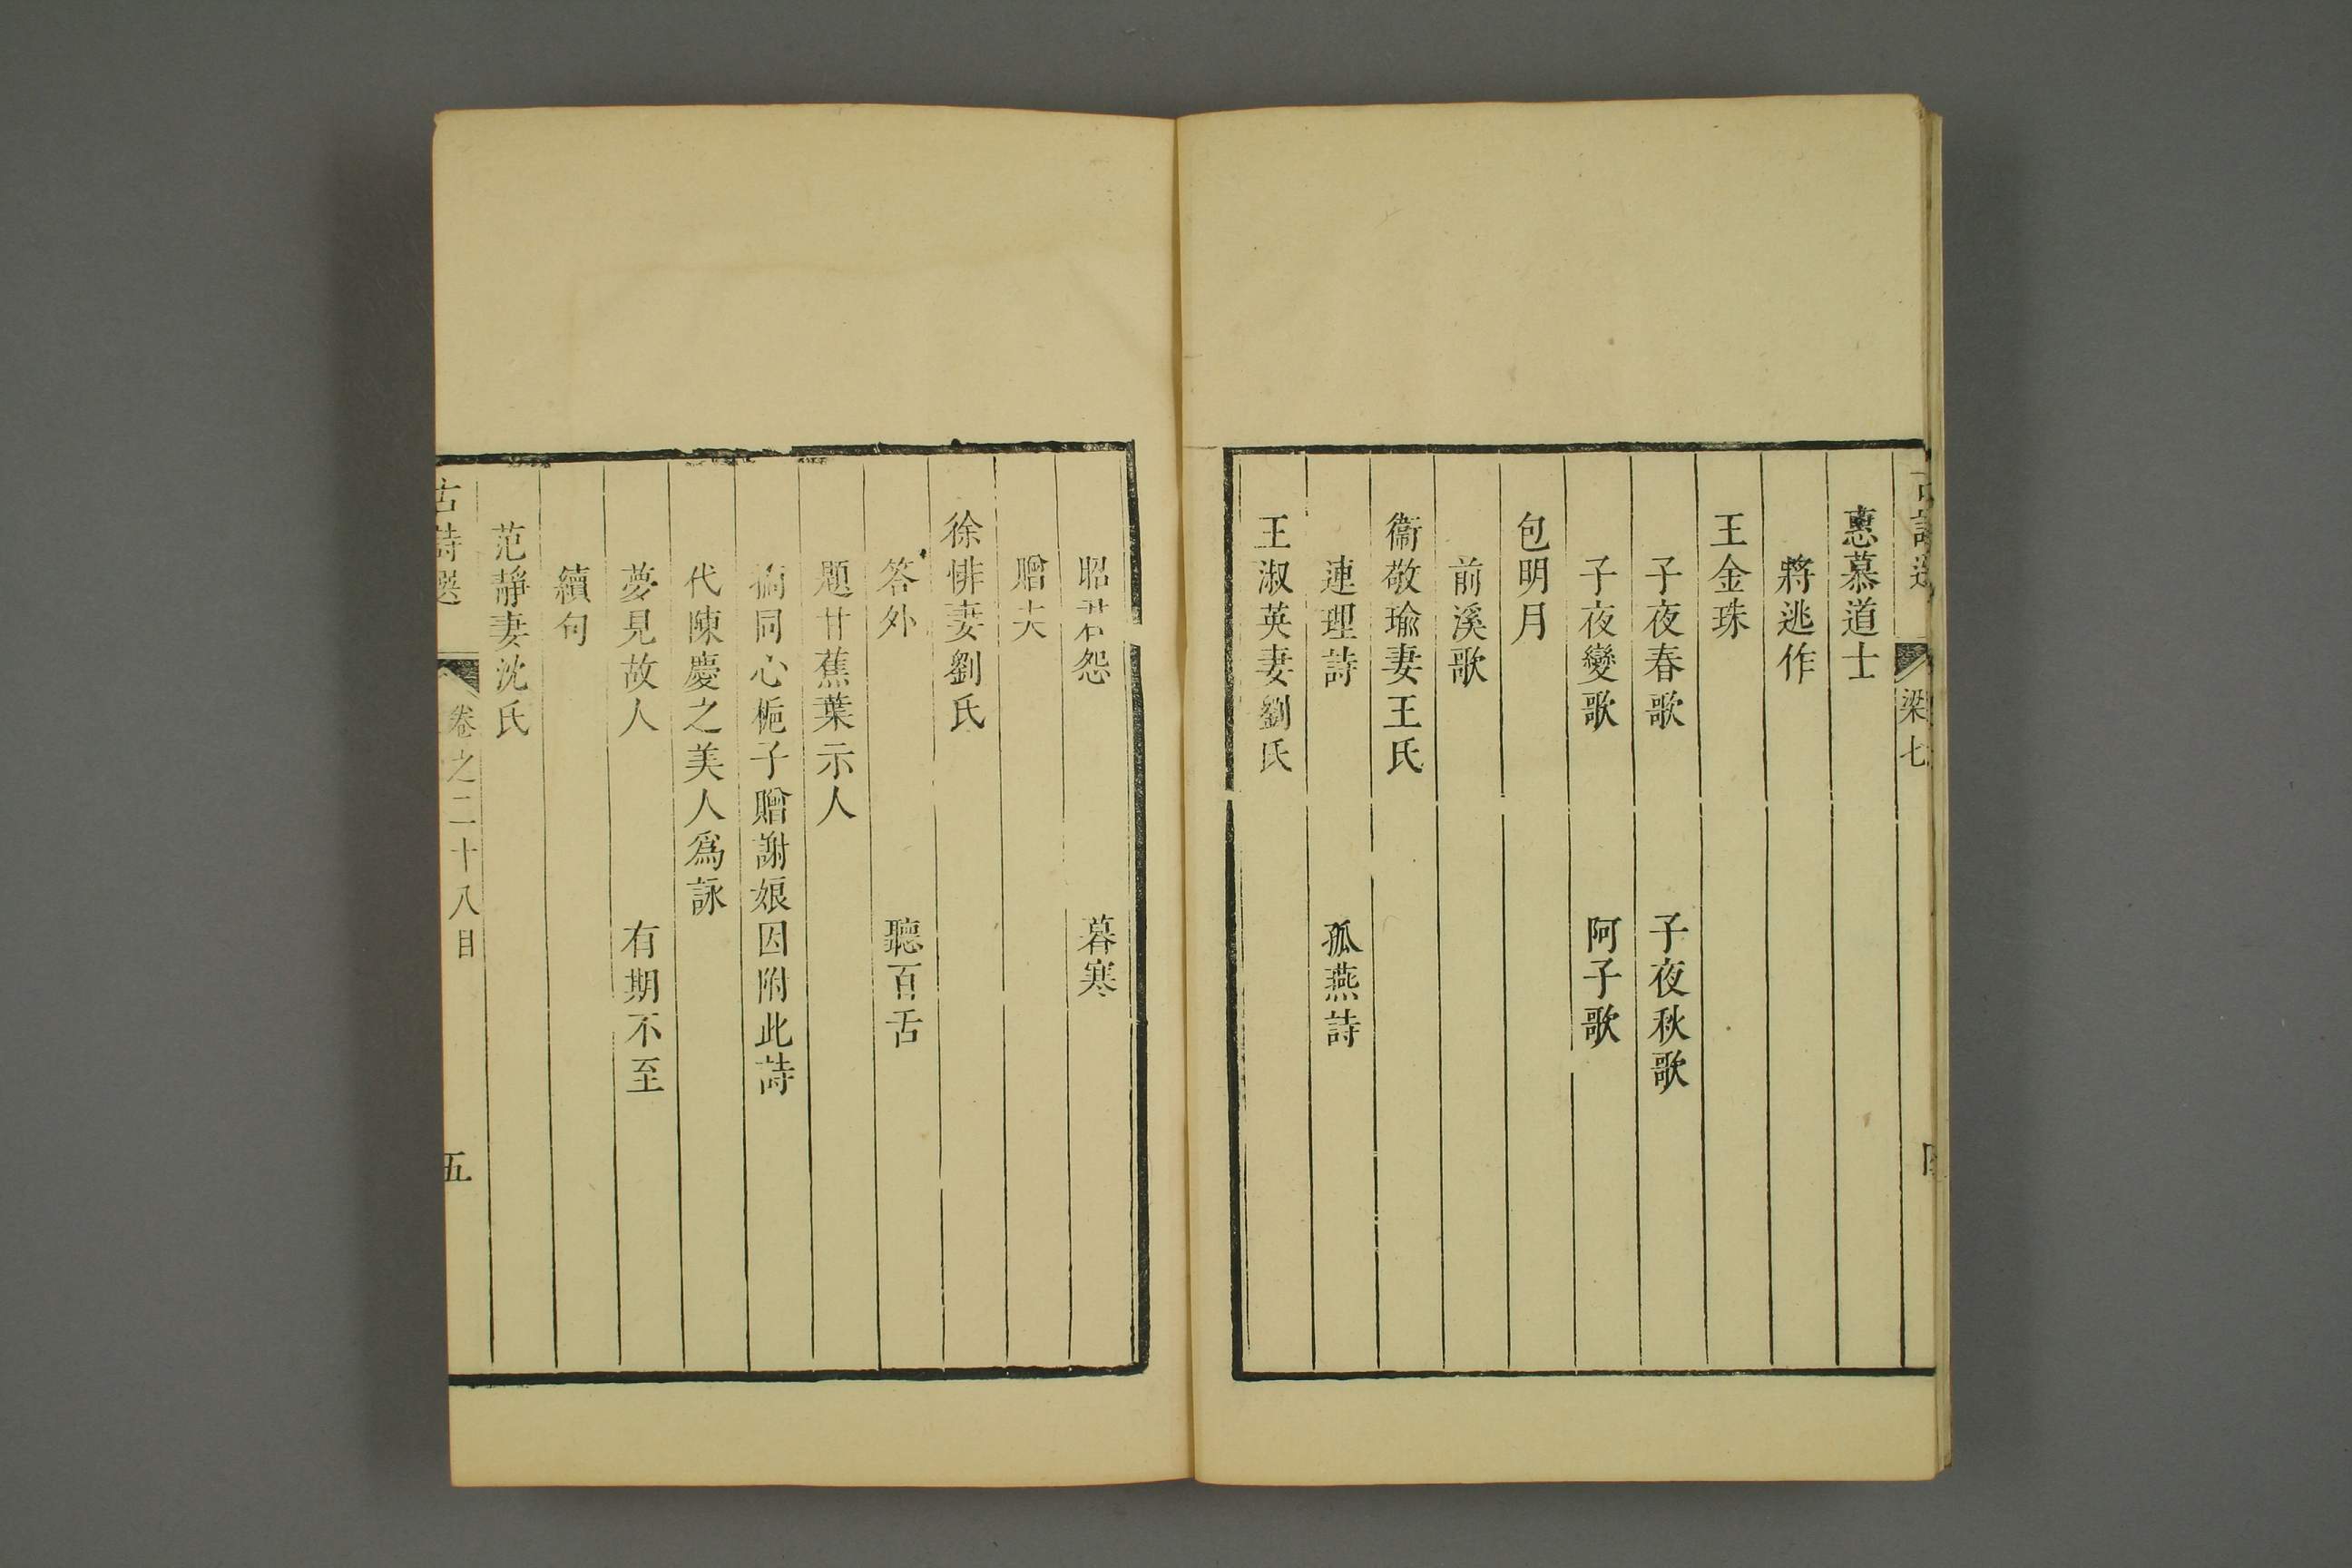 梁七
惠慕道士
將逃作
王金珠
子夜春歌　子夜秋歌
子夜變歌　阿子歌
包明月
前溪歌
衞敬瑜妻王氏
連理詩　孤燕詩
王淑英妻劉氏
昭君怨　暮寒
贈夫
徐悱妻劉氏
答外　聽百舌
題甘蕉葉示人
摘同心梔子贈謝娘因附此詩
代陳慶之美人爲詠
夢見故人　有期不至
續句
范靜妻沈氏
古詩選　卷之二十八目　五